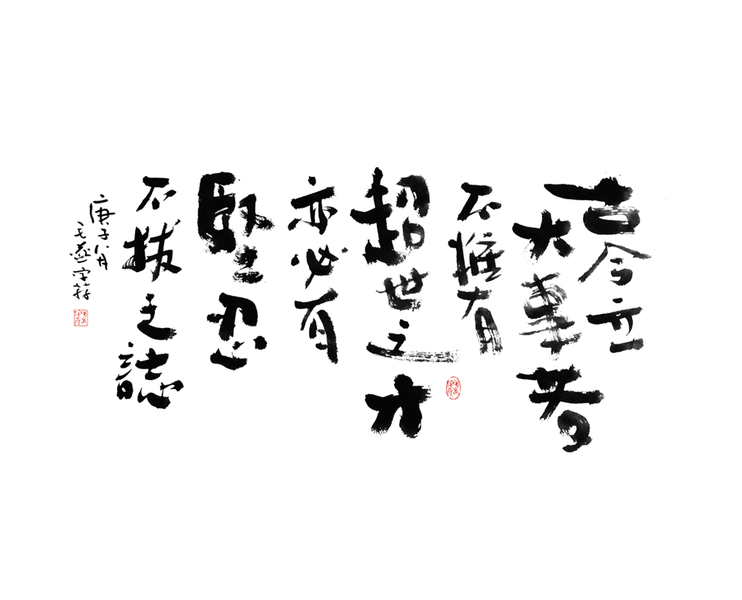 古今立
大事者
不惟有
超世之才
亦必有
堅忍
不拔之誌
庚子八月